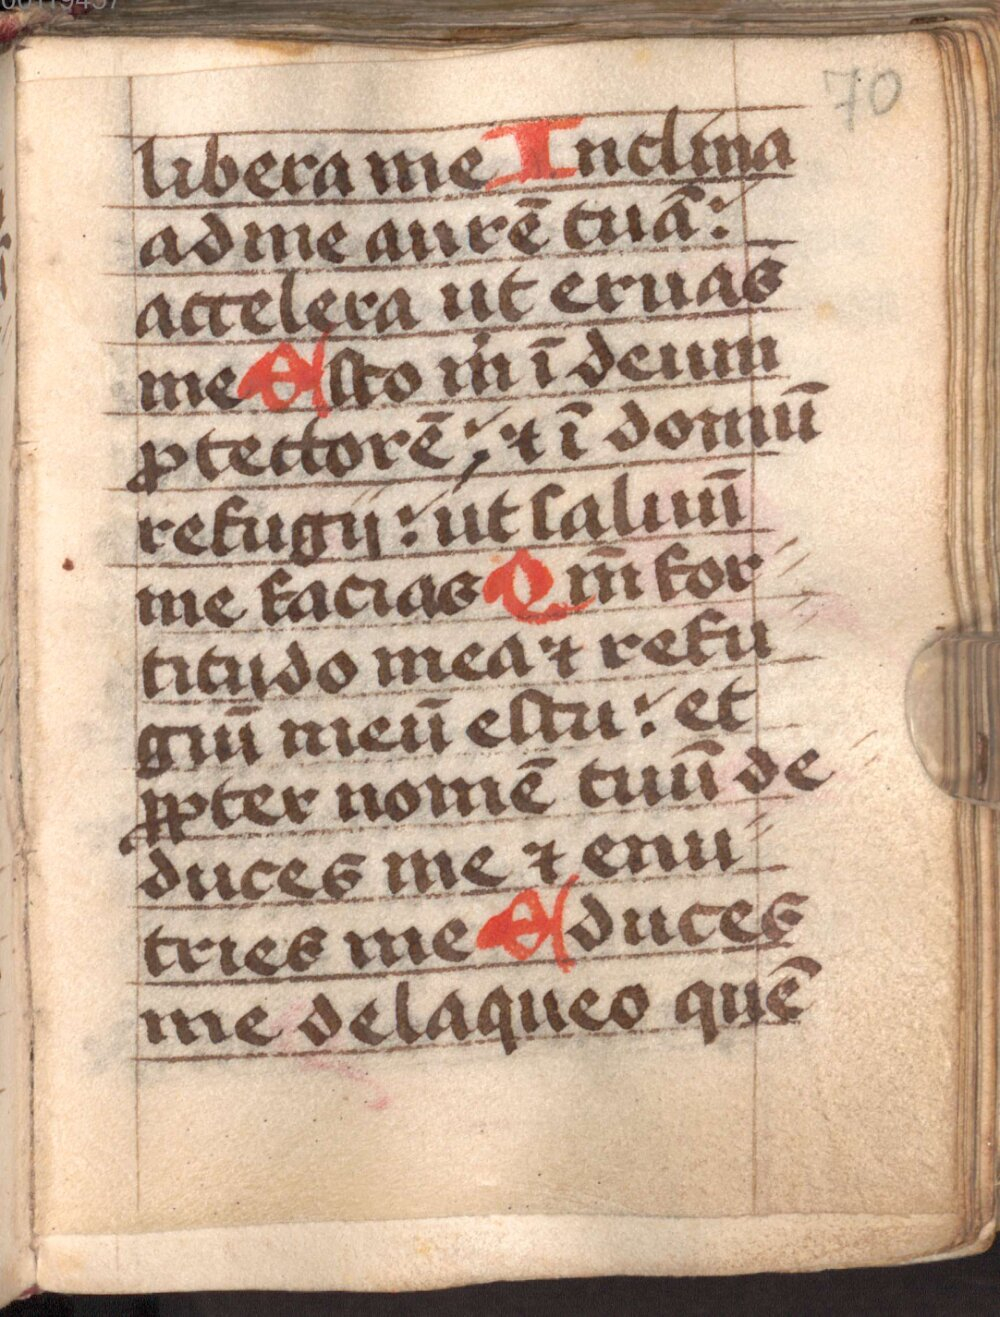 70
libera me Inclina
ad me aurē tuā:
accelera ut eruas
me Esto m̄ ī deum
ꝓtectorē: ⁊ ī domū
refugij: ut saluū
me facias Qm̄ for
titudo mea ⁊ refu
giū meū es tu: et
ꝓpter nomē tuū de
duces me ⁊ enu
tries me Educes
me de laqueo quē